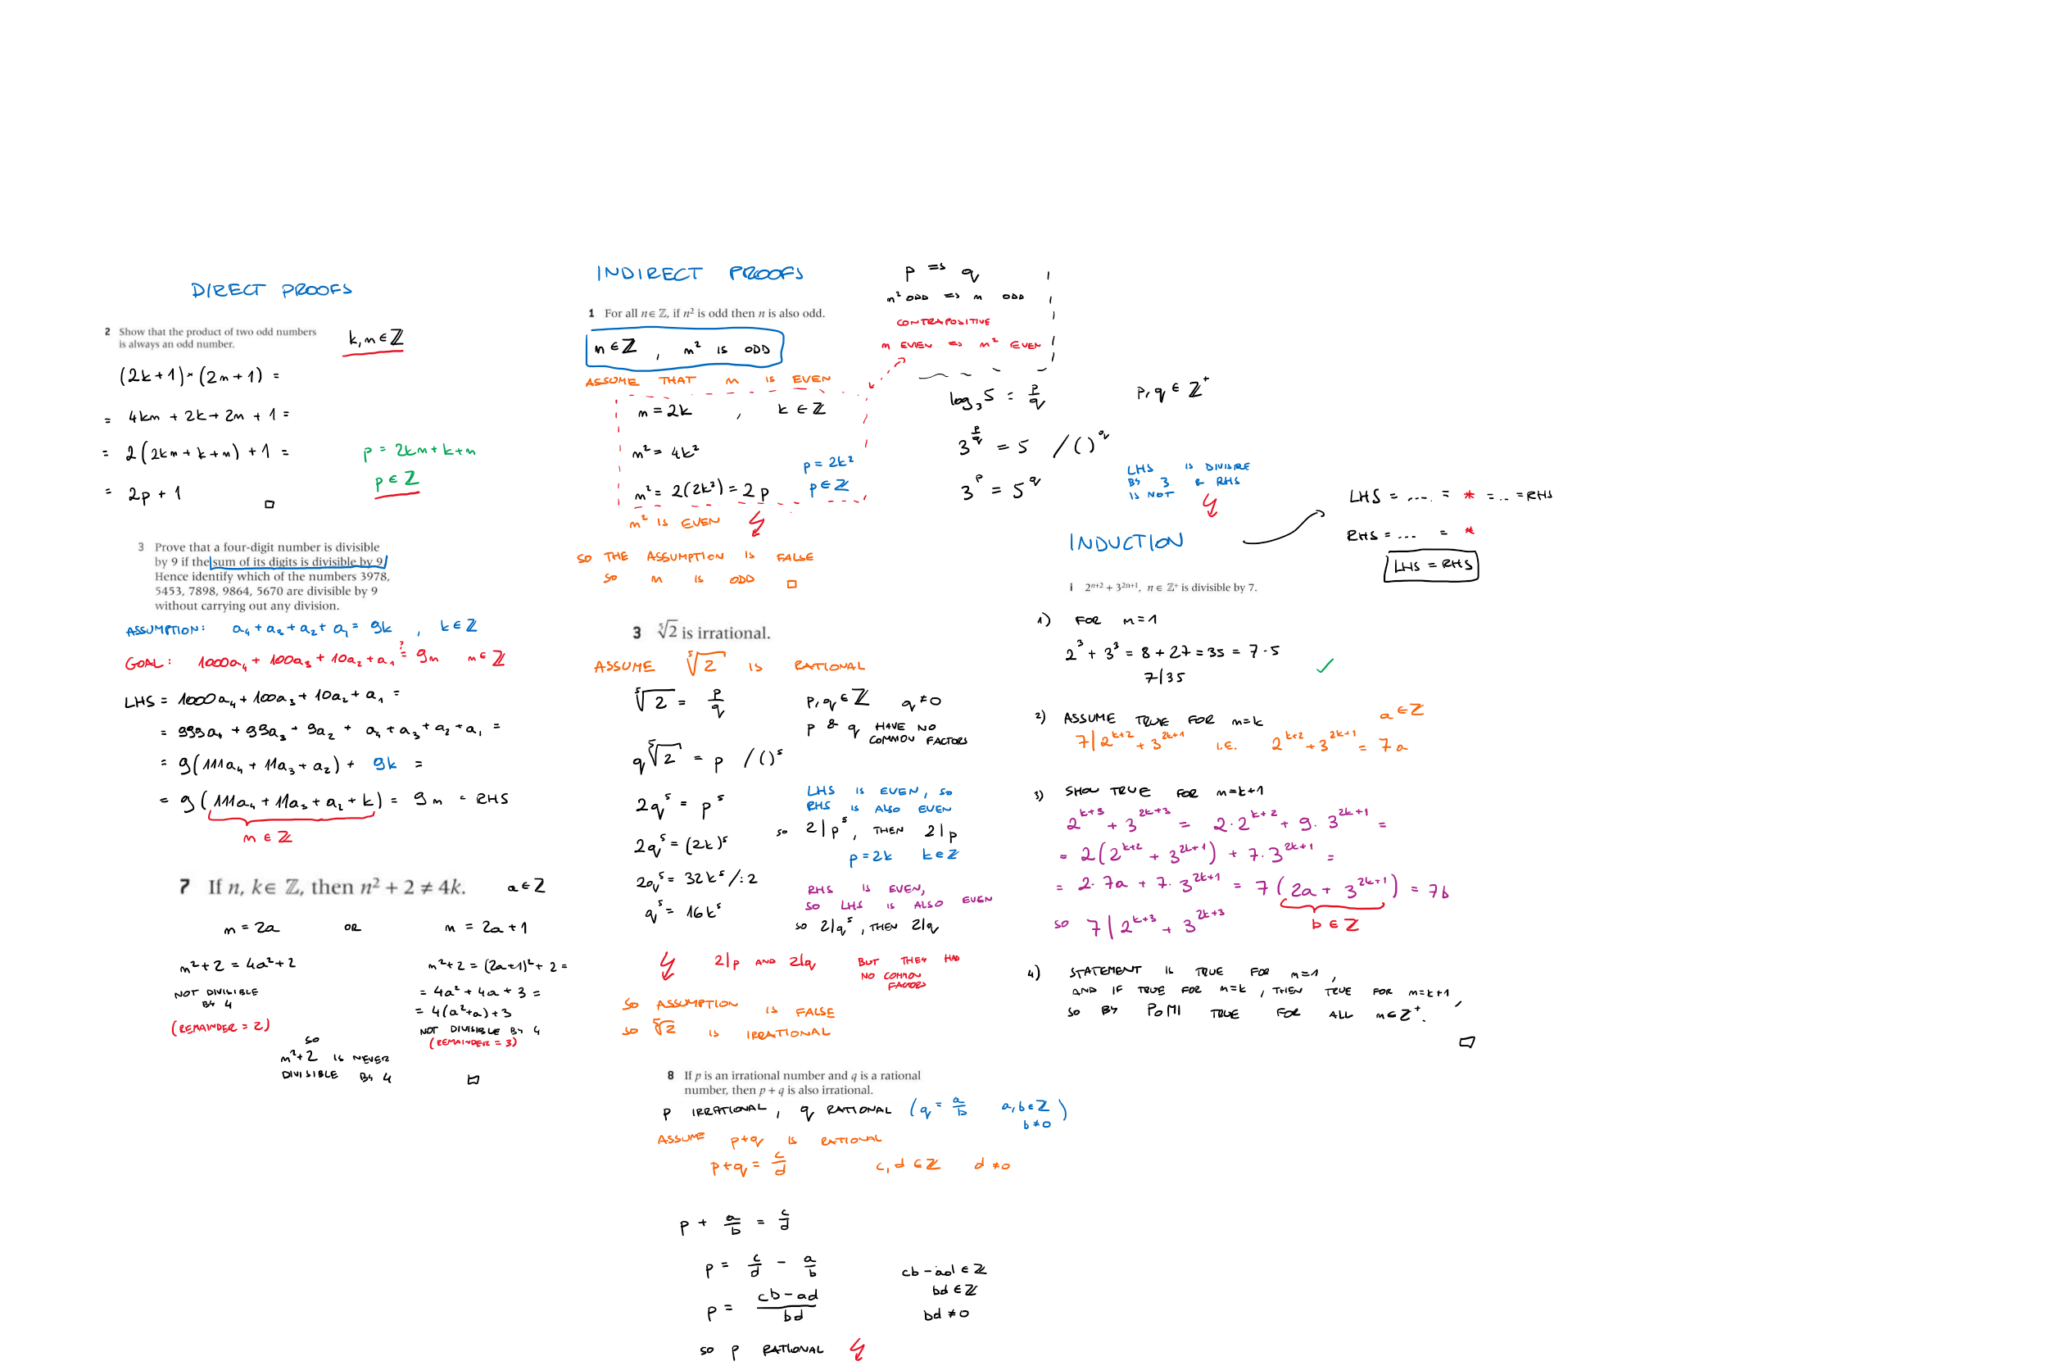 DIRECT PROOFS
2 Show that the product of two odd numbers
is always an odd number.
k, n ∈ ℤ
(2k+1)·(2n+1) =
= 4kn + 2k + 2n + 1 =
= 2(2kn + k + n) + 1 =
p = 2kn + k + n
= 2p + 1
p ∈ ℤ
□
3 Prove that a four-digit number is divisible
by 9 if the sum of its digits is divisible by 9.
Hence identify which of the numbers 3978,
5453, 7898, 9864, 5670 are divisible by 9
without carrying out any division.
ASSUMPTION: a₄ + a₃ + a₂ + a₁ = 9k , k ∈ ℤ
GOAL: 1000a₄ + 100a₃ + 10a₂ + a₁ =? 9m m ∈ ℤ
LHS = 1000a₄ + 100a₃ + 10a₂ + a₁ =
= 999a₄ + 99a₃ + 9a₂ + a₄ + a₃ + a₂ + a₁ =
= 9(111a₄ + 11a₃ + a₂) + 9k =
= 9(111a₄ + 11a₃ + a₂ + k) = 9m = RHS
m ∈ ℤ
7 If n, k ∈ ℤ, then n² + 2 ≠ 4k.
a ∈ ℤ
n = 2a OR n = 2a + 1
n² + 2 = 4a² + 2
NOT DIVISIBLE
BY 4
(REMAINDER = 2)
n² + 2 = (2a+1)² + 2 =
= 4a² + 4a + 3 =
= 4(a² + a) + 3
NOT DIVISIBLE BY 4
(REMAINDER = 3)
SO
n² + 2 IS NEVER
DIVISIBLE BY 4
□
INDIRECT PROOFS
1 For all n ∈ ℤ, if n² is odd then n is also odd.
n ∈ ℤ , n² IS ODD
ASSUME THAT n IS EVEN
n = 2k , k ∈ ℤ
n² = 4k²
n² = 2(2k²) = 2p
p = 2k²
p ∈ ℤ
n² IS EVEN
SO THE ASSUMPTION IS FALSE
SO n IS ODD □
p ⇒ q
n² ODD ⇒ n ODD
CONTRAPOSITIVE
n EVEN ⇒ n² EVEN
3 ⁵√2 is irrational.
ASSUME ⁵√2 IS RATIONAL
⁵√2 = p/q
p, q ∈ ℤ q ≠ 0
p & q HAVE NO
COMMON FACTORS
q⁵√2 = p /()⁵
2q⁵ = p⁵
LHS IS EVEN, SO
RHS IS ALSO EVEN
SO 2|p⁵, THEN 2|p
p = 2k k ∈ ℤ
2q⁵ = (2k)⁵
2q⁵ = 32k⁵ /:2
q⁵ = 16k⁵
RHS IS EVEN,
SO LHS IS ALSO EVEN
SO 2|q⁵, THEN 2|q
2|p AND 2|q BUT THEY HAD
NO COMMON
FACTORS
SO ASSUMPTION IS FALSE
SO ⁵√2 IS IRRATIONAL
8 If p is an irrational number and q is a rational
number, then p + q is also irrational.
p IRRATIONAL, q RATIONAL (q = a/b a, b ∈ ℤ
b ≠ 0)
ASSUME p+q IS RATIONAL
p+q = c/d c, d ∈ ℤ d ≠ 0
p + a/b = c/d
p = c/d − a/b
p = (cb − ad)/bd
cb − ad ∈ ℤ
bd ∈ ℤ
bd ≠ 0
SO p RATIONAL
log₃5 = p/q p, q ∈ ℤ⁺
3^(p/q) = 5 /()^q
3^p = 5^q
LHS IS DIVISIBLE
BY 3 & RHS
IS NOT
INDUCTION
LHS = .... = * = .. = RHS
RHS = ... = *
LHS = RHS
i 2ⁿ⁺² + 3²ⁿ⁺¹, n ∈ ℤ⁺ is divisible by 7.
1) FOR n=1
2³ + 3³ = 8 + 27 = 35 = 7·5
7|35 ✓
2) ASSUME TRUE FOR n=k a ∈ ℤ
7|2^(k+2) + 3^(2k+1) I.E. 2^(k+2) + 3^(2k+1) = 7a
3) SHOW TRUE FOR n=k+1
2^(k+3) + 3^(2k+3) = 2·2^(k+2) + 9·3^(2k+1) =
= 2(2^(k+2) + 3^(2k+1)) + 7·3^(2k+1) =
= 2·7a + 7·3^(2k+1) = 7(2a + 3^(2k+1)) = 7b
SO 7|2^(k+3) + 3^(2k+3)
b ∈ ℤ
4) STATEMENT IS TRUE FOR n=1,
AND IF TRUE FOR n=k, THEN TRUE FOR n=k+1,
SO BY POMI TRUE FOR ALL n∈ℤ⁺.
□